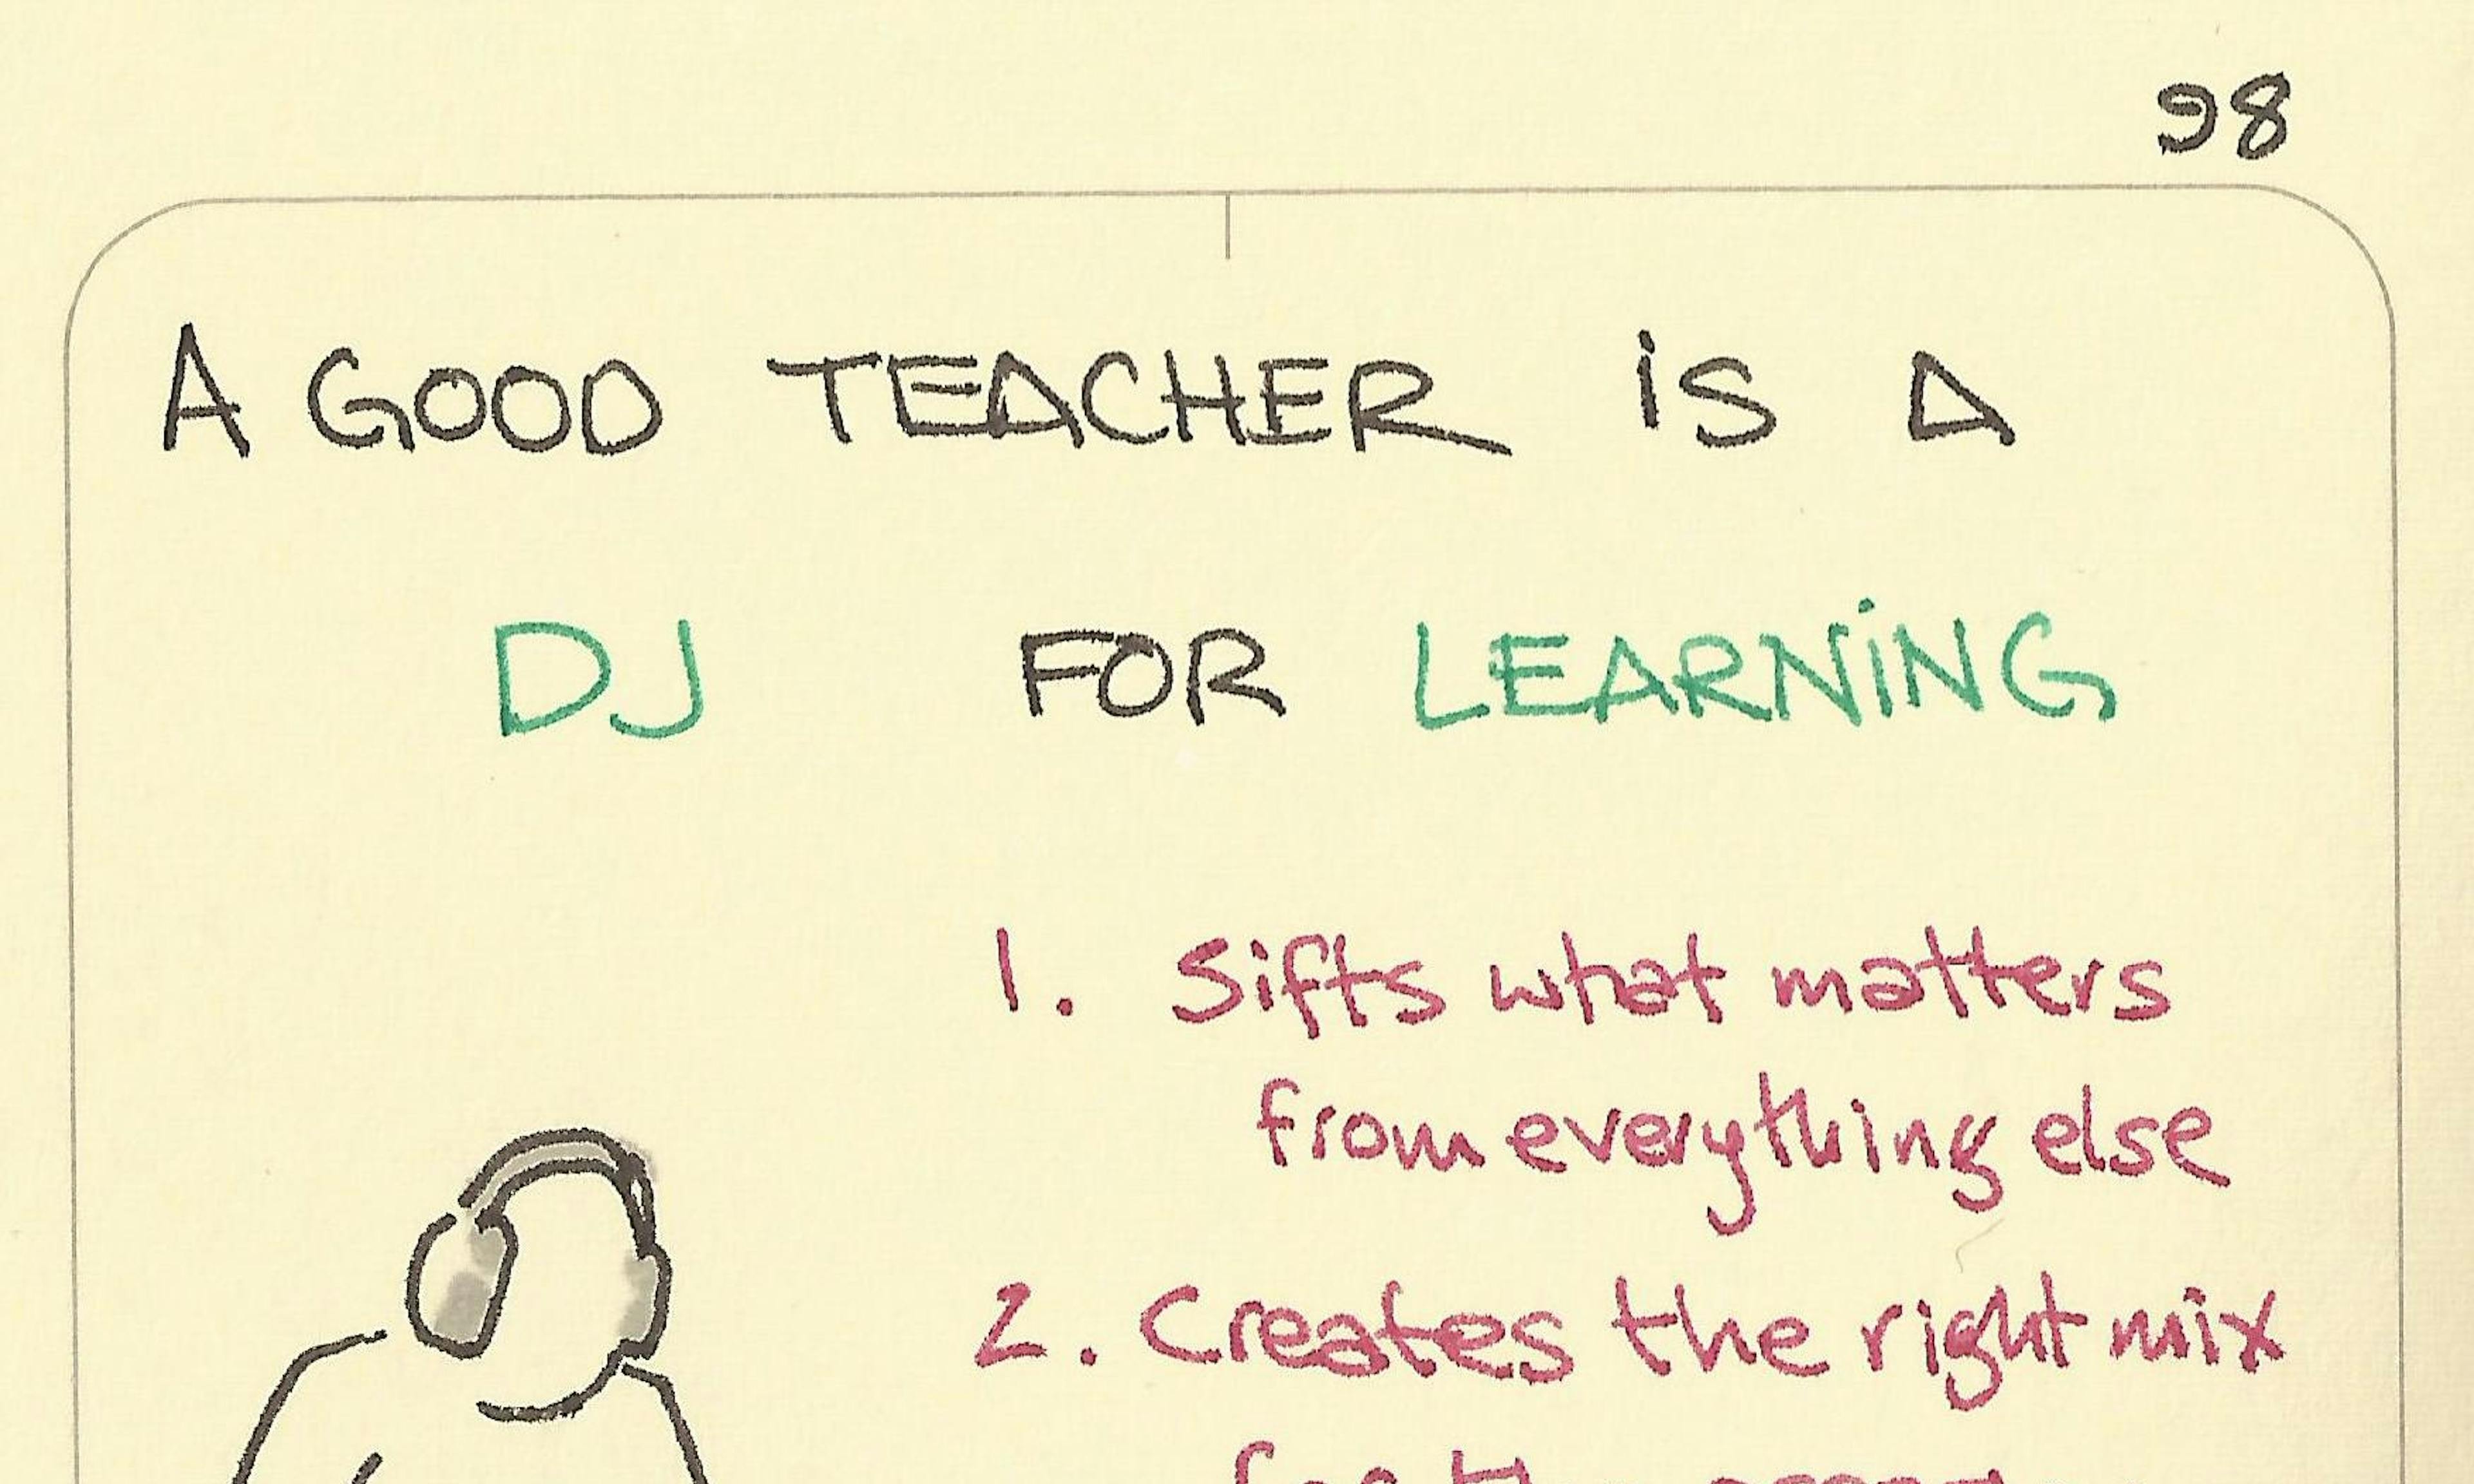 98
A GOOD TEACHER iS A
DJ FOR LEARNiNG
1. Sifts what matters
from everything else
2. Creates the right mix